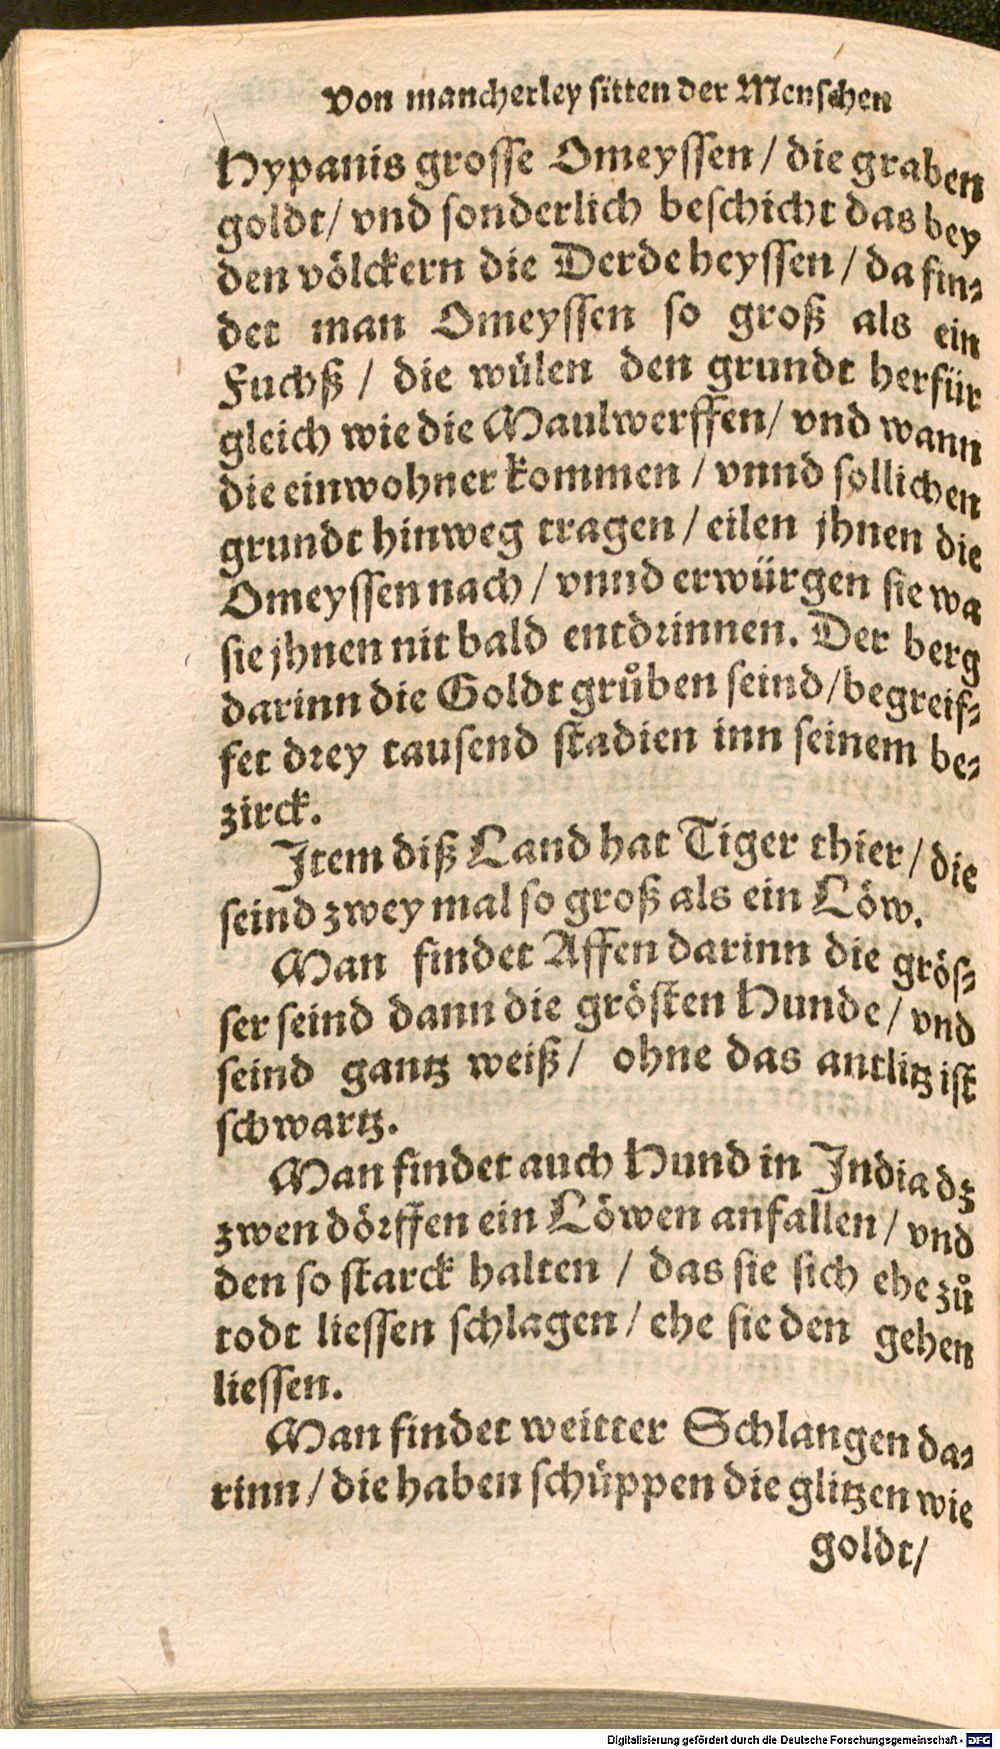 Von mancherley sitten der Menschen
Hypanis grosse Omeyssen / die graben
goldt / vnd sonderlich beschicht das bey
den völckern die Derde heyssen / da fin⸗
det man Omeyssen so groß als ein
Fuchß / die wülen den grundt herfür
gleich wie die Maulwerffen / vnd wann
die einwohner kommen / vnnd sollichen
grundt hinweg tragen / eilen jhnen die
Omeyssen nach / vnnd erwürgen sie wa
sie jhnen nit bald entdrinnen. Der berg
darinn die Goldt grůben seind / begreif⸗
fet drey tausend stadien inn seinem be⸗
zirck.
Item diß Land hat Tiger thier / die
seind zwey mal so groß als ein Löw.
Man findet Affen darinn die grös⸗
ser seind dann die grösten Hunde / vnd
seind gantz weiß / ohne das antlitz ist
schwartz.
Man findet auch Hund in India dz
zwen dörffen ein Löwen anfallen / vnd
den so starck halten / das sie sich ehe zů
todt liessen schlagen / ehe sie den gehen
liessen.
Man findet weitter Schlangen da⸗
rinn / die haben schüppen die glitzen wie
goldt /
Digitalisierung gefördert durch die Deutsche Forschungsgemeinschaft - DFG